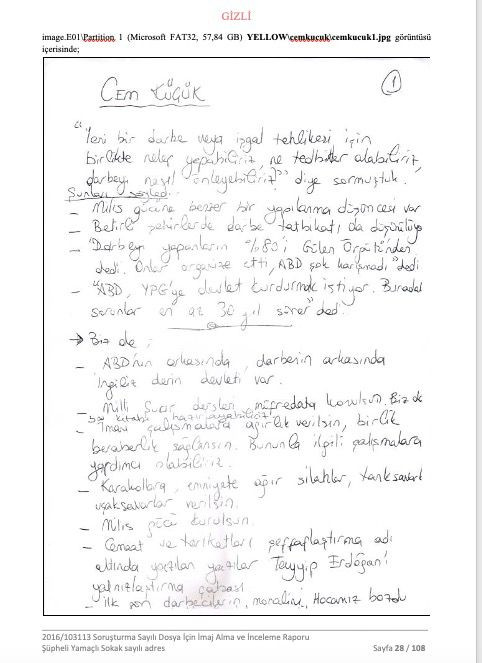 GİZLİ
image.E01\Partition 1 (Microsoft FAT32, 57,84 GB) YELLOW\cemkucuk\cemkucuk1.jpg görüntüsü
içerisinde;
1
CEM KÜÇÜK
"Yeni bir darbe veya işgal tehlikesi için
birlikte neler yapabiliriz, ne tedbirler alabiliriz,
darbeyi nasıl önleyebiliriz?" diye sormuştuk.
Şunları söyledi
- Milis gücüne benzer bir yapılanma düşüncesi var
- Belirli şehirlerde darbe tatbikatı da düşünülüyor
- "Darbeyi yapanların %80'i Gülen Örgütü'nden
dedi. Onlar organize etti, ABD çok karışmadı" dedi
- "ABD, YPG'ye devlet kurdurmak istiyor. Buradaki
sorunlar en az 30 yıl sürer" dedi.
→ Biz de;
- ABD'nin arkasında, darbenin arkasında
İngiliz derin devleti var.
- Milli Şuur dersleri müfredata konulsun. Biz de
ders kitabı hazırlayabiliriz
- İmani çalışmalara ağırlık verilsin, birlik
beraberlik sağlansın. Bununla ilgili çalışmalara
yardımcı olabiliriz.
- Karakollara, emniyete ağır silahlar, tanksavar
uçaksavarlar verilsin.
- Milis gücü kurulsun.
- Cemaat ve tarikatları şeffaflaştırma adı
altında yazılan yazılar Tayyip Erdoğan'ı
yalnızlaştırma çabası
- İlk gün darbecilerin, moralini, Hocamız bozdu
2016/103113 Soruşturma Sayılı Dosya İçin İmaj Alma ve İnceleme Raporu
Şüpheli Yamaçlı Sokak sayılı adres
Sayfa 28 / 108